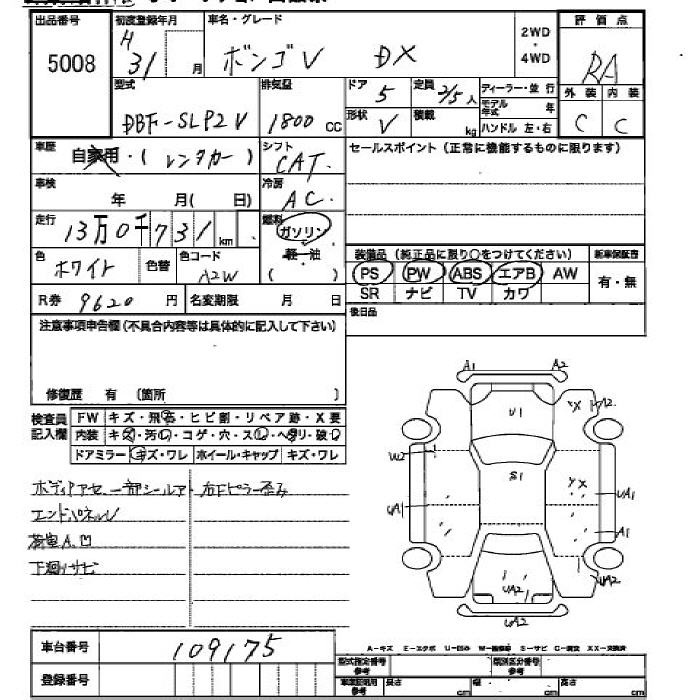 出品番号 初度登録年月 車名・グレード 2WD・4WD 評価点
5008 H 31 月 ボンゴV DX RA
型式 排気量 ドア 定員 ディーラー・並行 外装 内装
DBF-SLP2V 1800 CC 5 2/5 人 モデル年式 年 C C
形状 V 積載 kg ハンドル 左・右
車歴 自家用・(レンタカー) シフト CAT. セールスポイント(正常に機能するものに限ります)
車検 年 月( 日) 冷房 AC.
走行 13万0千731km 燃料 ガソリン
軽油
( )
色 ホワイト 色替 色コード A2W
装備品(純正品に限り○をつけてください) 新車保証書
PS PW ABS エアB AW 有・無
SR ナビ TV カワ
R券 9620 円 名変期限 月 日
後日品
注意事項申告欄(不具合内容等は具体的に記入して下さい)
修復歴 有 〔箇所 〕
検査員記入欄 FW キズ・飛石・ヒビ割・リペア跡・X要
内装 キズ・汚れ・コゲ・穴・スレ・ヘタリ・破れ
ドアミラー キズ・ワレ ホイール・キャップ キズ・ワレ
エンドパネルU
下廻りサビ
A1 A2
U1 XX A2
W2 S1 XX
UA1 UA1
A1
UA2 UA2
UA2
車台番号 109175
登録番号
A-キズ E-エクボ U-凹み W-補修跡 S-サビ C-腐食 XX-交換済
型式指定番号 参考 類別区分番号 参考
車庫証明用 参考 長さ cm 幅 cm 高さ cm